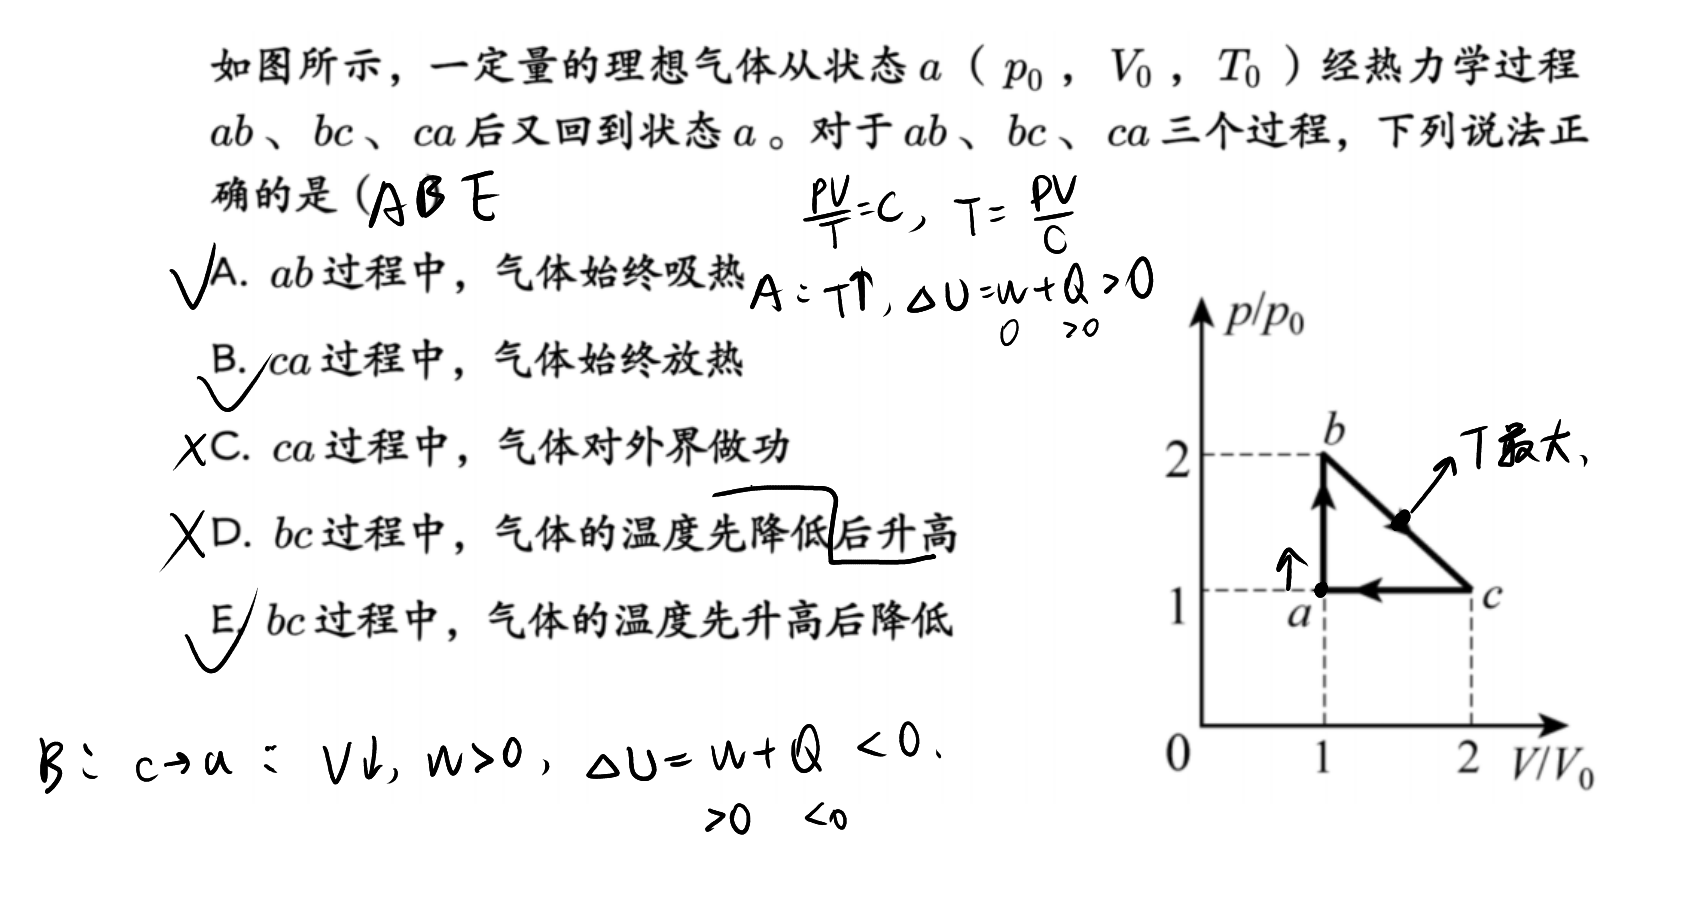 如图所示，一定量的理想气体从状态 a（ p₀ ， V₀ ， T₀ ）经热力学过程
ab 、 bc 、 ca 后又回到状态 a 。对于 ab 、 bc 、 ca 三个过程，下列说法正
确的是（ABE
PV/T=C，T=PV/C
✓A. ab 过程中，气体始终吸热
A：T↑，ΔU=W+Q>0
0 >0
✓B. ca 过程中，气体始终放热
×C. ca 过程中，气体对外界做功
×D. bc 过程中，气体的温度先降低后升高
✓E. bc 过程中，气体的温度先升高后降低
p/p₀
b
T最大、
2
↑
1
a
c
0
1
2
V/V₀
B：c→a：V↓，W>0，ΔU=W+Q<0.
>0 <0